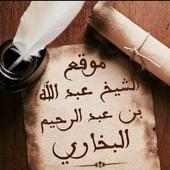 موقع
الشيخ عبد الله
بن عبد الرحيم
البخاري